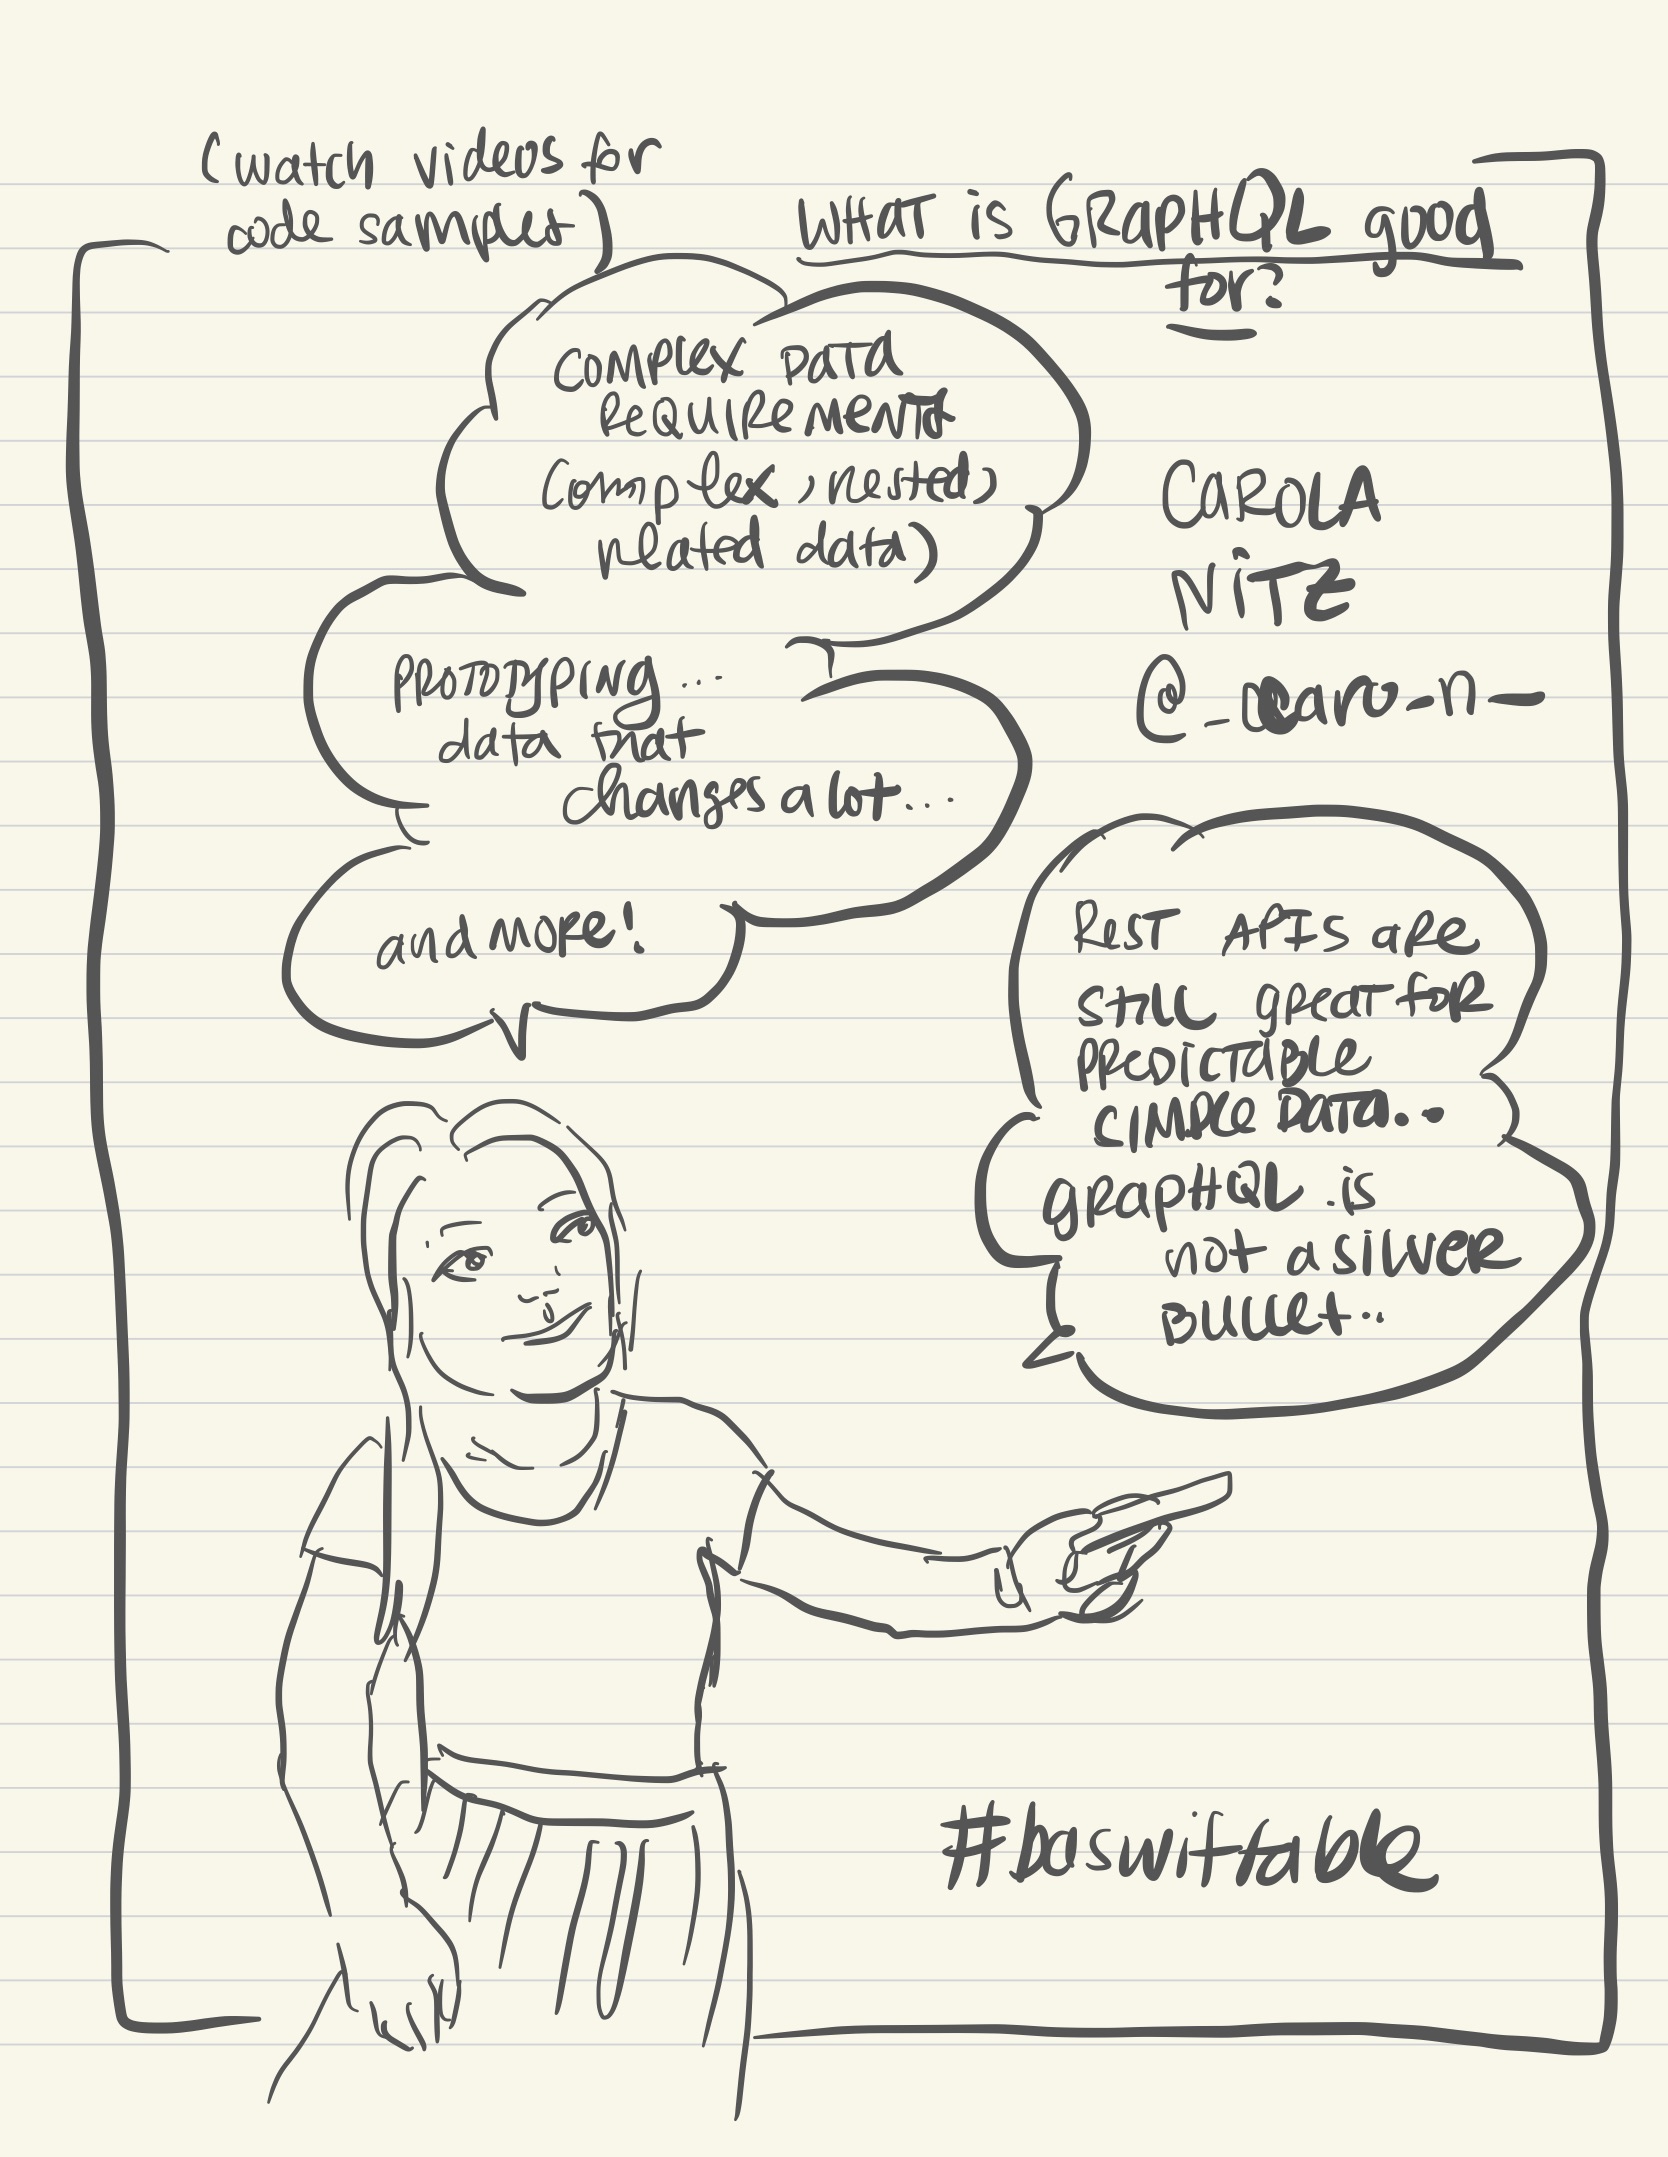 (watch videos for
code samples)
WHAT is GRAPHQL good
for?
COMPLEX DATA
REQUIREMENTS
(complex, nested,
related data)
PROTOTYPING...
data that
changes a lot...
and MORE!
CAROLA
NiTZ
@_caro_n_
REST APIS ARE
STILL GREAT FOR
PREDICTABLE
SIMPLE DATA..
GRAPHQL is
not a SILVER
BULLET..
#baswiftable